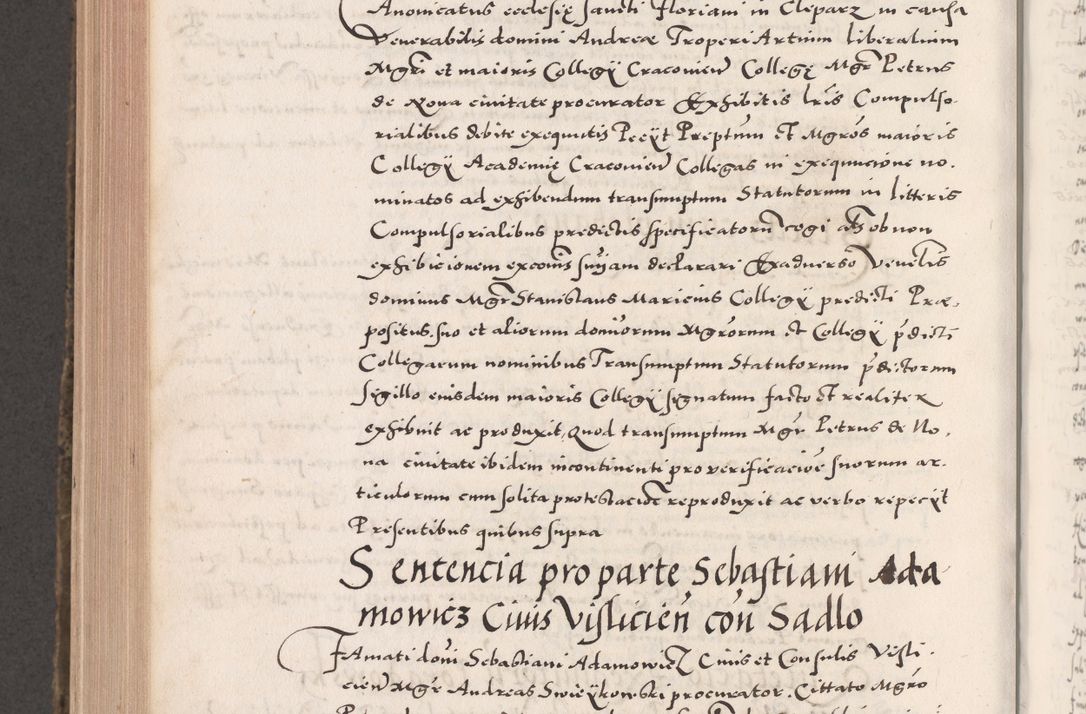 Anonicatus ecclesię sancti Floriani in Cleparz in causa
Venerabilis domini Andreæ Troperi Artium liberalium
Mgri et maioris Collegÿ Cracovien Collegę Mgr Petrus
de Nova civitate procurator Exhibitis lris Compulso-
rialibus debite exequutis Pecÿt Preptum et Mgros maioris
Collegÿ Academię Cracovien Collegas in exequucione no-
minatos ad exhibendum transumptum Statutorum in litteris
Compulsorialibus predictis specificatorn cogi ats ob non
exhibicionem excois suÿam declarari Ex adverso Venelis
dominus Mgr Stanislaus Maricius Collegÿ predicti Præ-
positus, suo et aliorum donuorum Mgrorum et Collegÿ pdicti
Collegarum nominibus Transumptum Statutorum pdictorum
sigillo eiusdem maioris Collegÿ signatum facto et realiter
exhibuit ac produxit, Quod transumptum Mgr Petrus de No-
ua civitate ibidem incontinenti pro verificacioe suorum ar-
ticulorum cum solita protestacioe reproduxit ac verbo repecÿt
Presentibus quibus supra
Sentencia pro parte Sebastiani Ada
mowicz Ciuis Vislicien con Sadlo
FAmati doni Sebastiani Adamowicz Ciuis et Consulis Visli-
cien Mgr Andreas Swieÿkowski procurator. Cittato Mgro